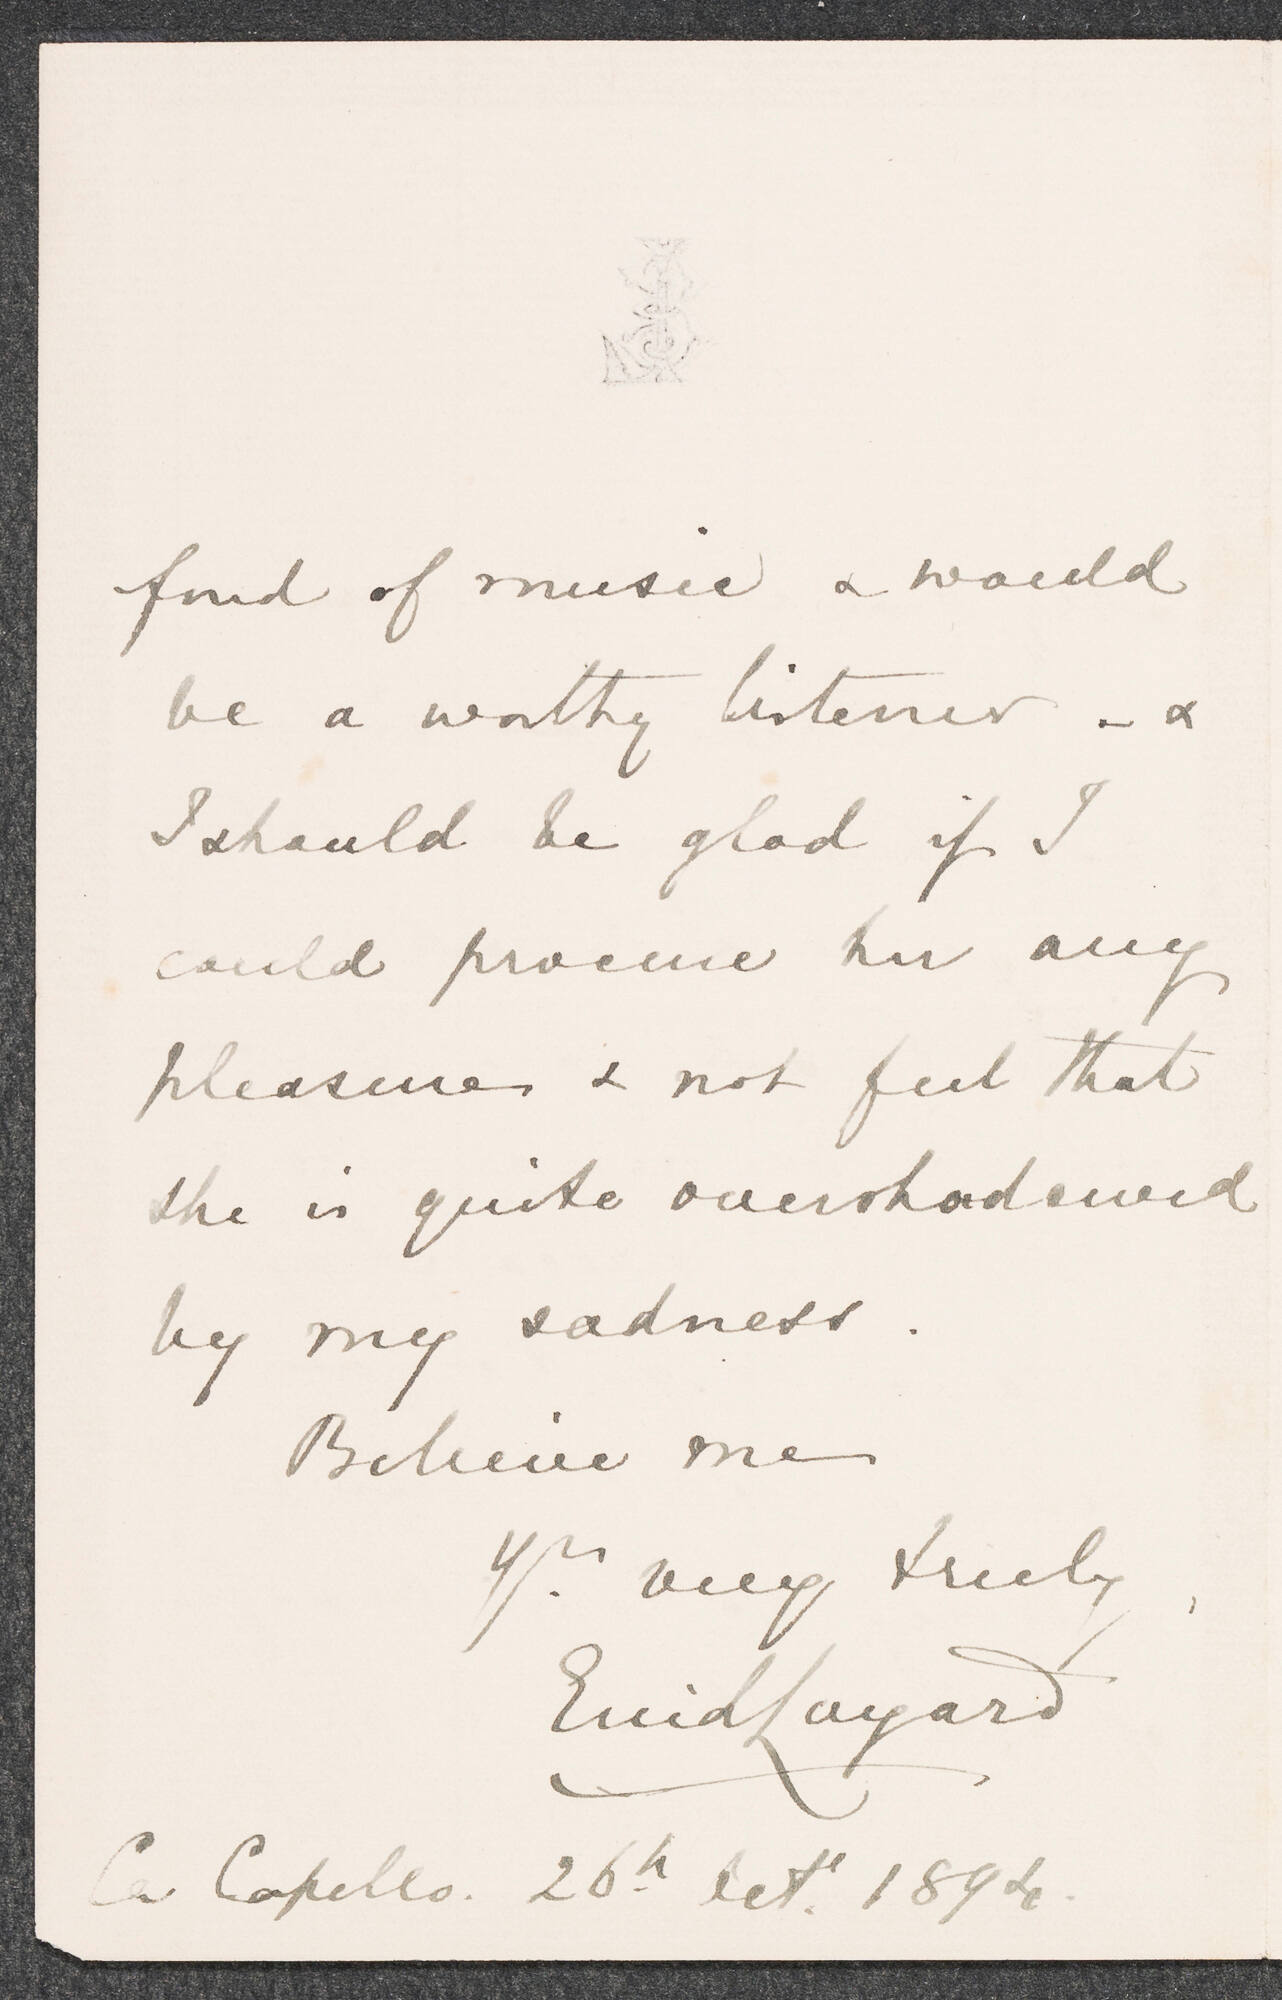 fond of music & would
be a worthy listener - &
I should be glad if I
could procure her any
pleasure & not feel that
she is quite overshadowed
by my sadness.
Believe me
Yrs. very truly,
Enid Layard
Ca Capello. 26th Octr. 1894.